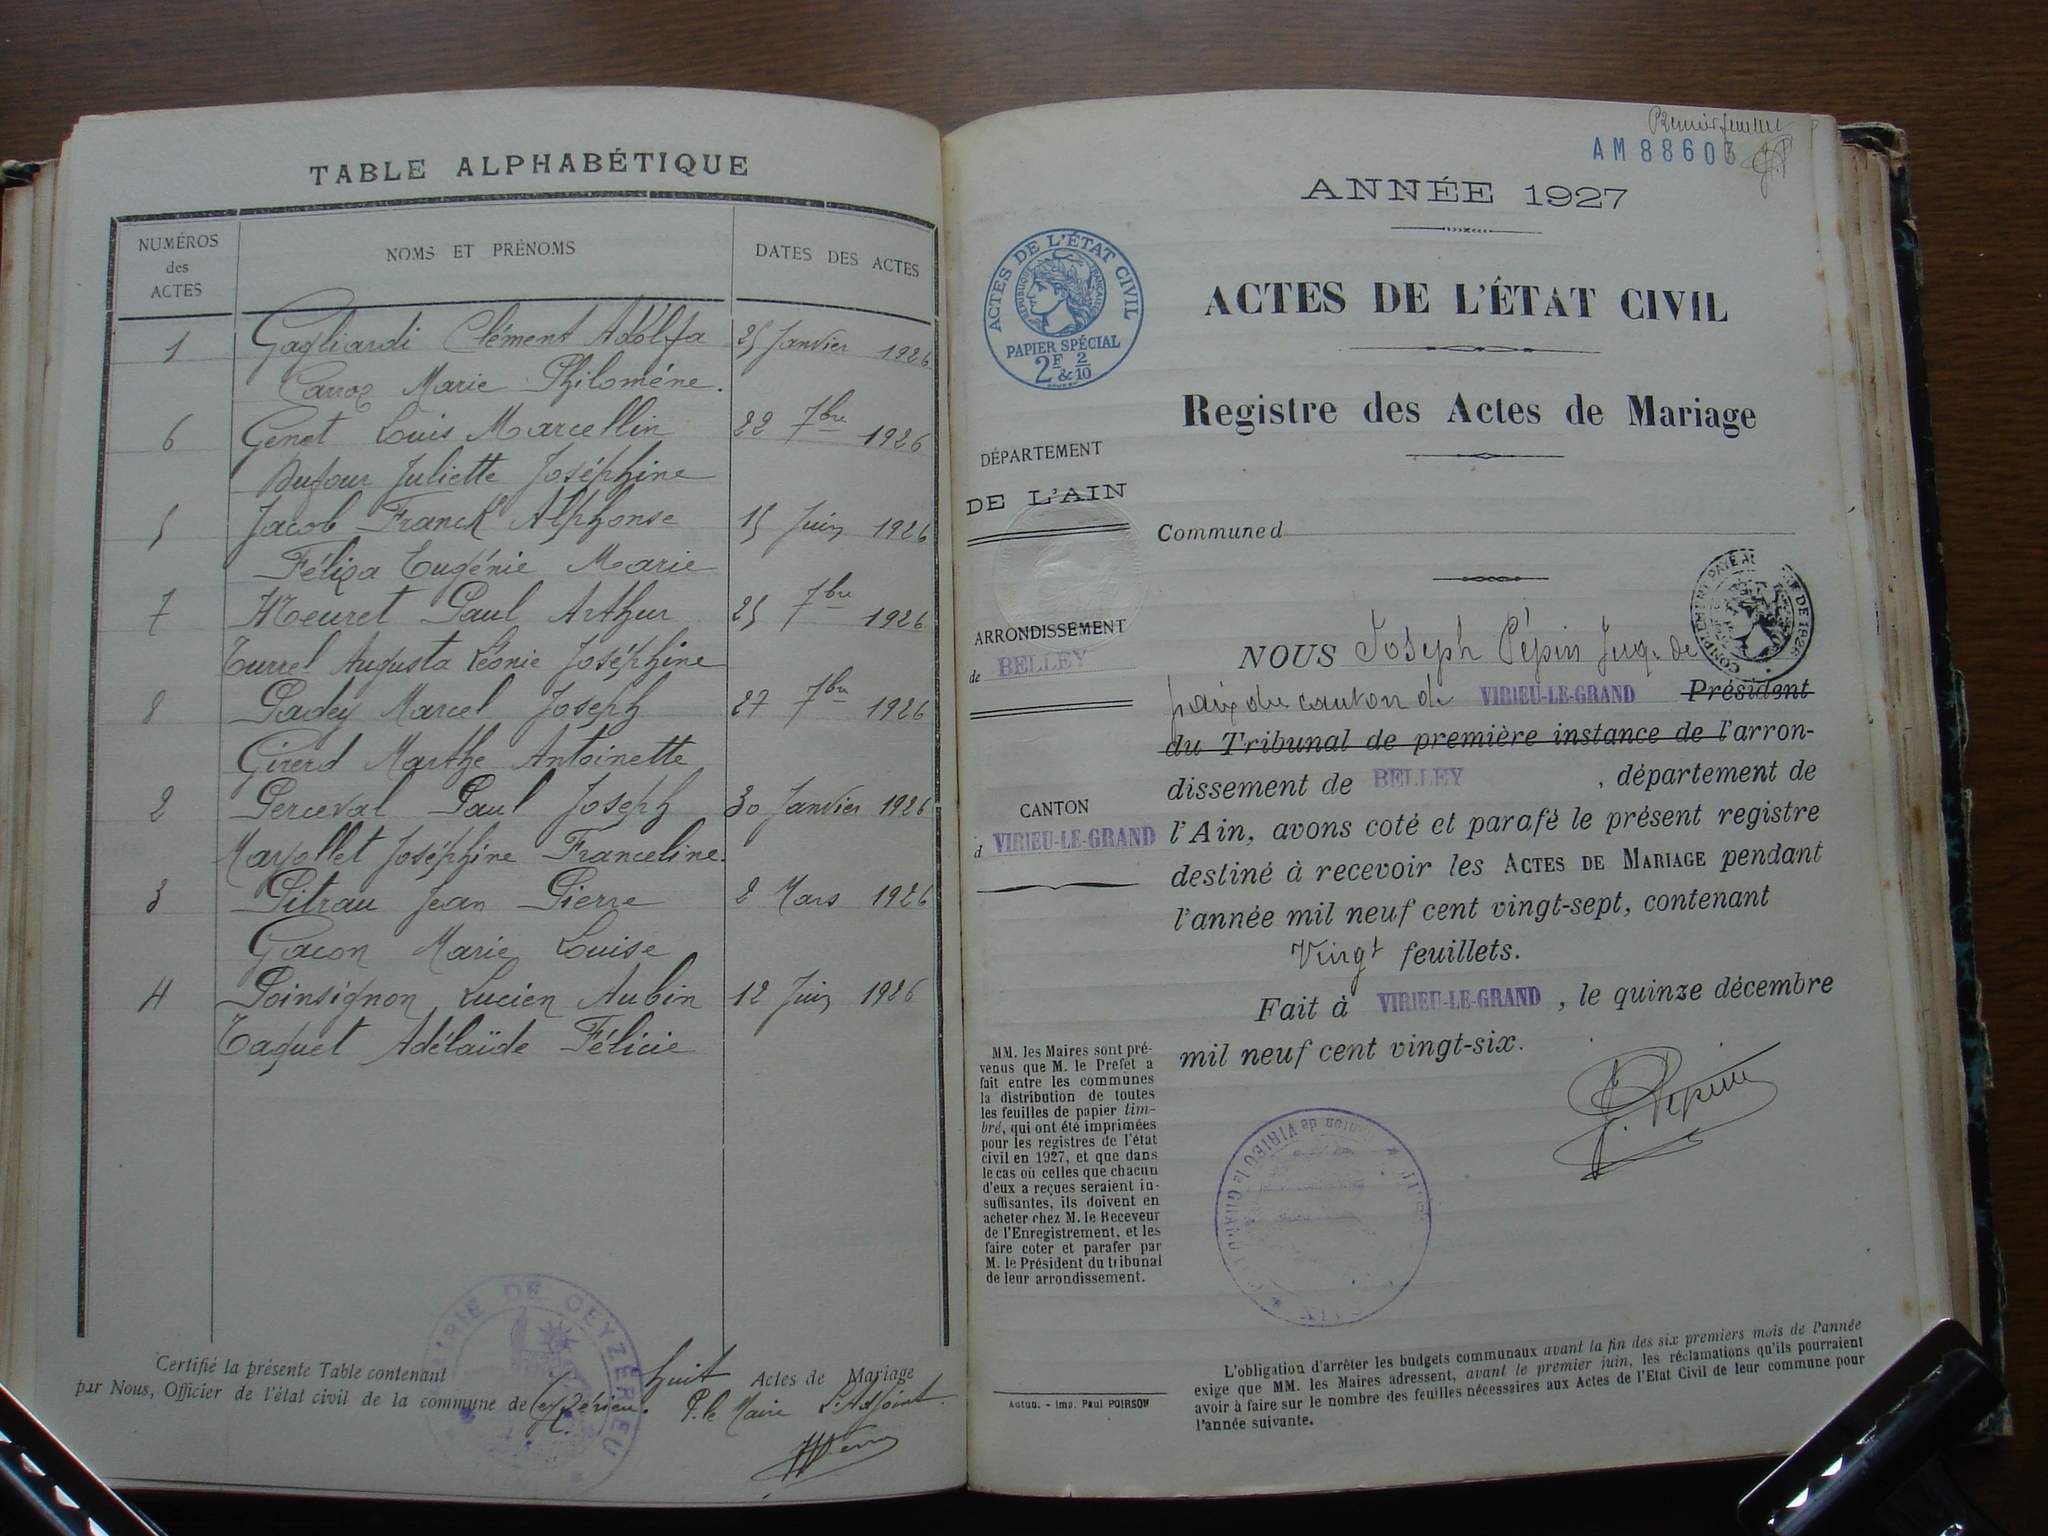 TABLE ALPHABÉTIQUE
NUMÉROS des ACTES
NOMS ET PRÉNOMS
DATES DES ACTES
1 Gagliardi Clément Adolfa 25 Janvier 1926
Marie Philomène.
6 Genet Louis Marcellin 22 7bre 1926
Dufour Juliette Joséphine
5 Jacob Franck Alphonse 15 Juin 1926
Féliza Eugénie Marie
7 Meuret Paul Arthur 25 7bre 1926
Turrel Augusta Léonie Joséphine
8 Padey Marcel Joseph 27 7bre 1926
Girerd Marthe Antoinette
2 Perceval Paul Joseph 30 Janvier 1926
Marjollet Joséphine Franceline.
3 Pitrau Jean Pierre 2 Mars 1926
Gacon Marie Louise
4 Poinsignon Lucien Aubin 12 Juin 1926
Taquet Adélaïde Félicie
Certifié la présente Table contenant huit Actes de Mariage
par Nous, Officier de l'état civil de la commune de Ceyzérieu. P. le Maire L'Adjoint.
MAIRIE DE CEYZÉRIEU
Premier feuillet
AM 88603
ANNÉE 1927
ACTES DE L'ÉTAT CIVIL
RÉPUBLIQUE FRANÇAISE
PAPIER SPÉCIAL
2F & 2/10
ACTES DE L'ÉTAT CIVIL
Registre des Actes de Mariage
DÉPARTEMENT
DE L'AIN
ARRONDISSEMENT
de BELLEY
CANTON
d VIRIEU-LE-GRAND
Commune d
NOUS Joseph Pépin Juge de
paix du canton de VIRIEU-LE-GRAND Président
du Tribunal de première instance de l'arron-
dissement de BELLEY , département de
l'Ain, avons coté et parafé le présent registre
destiné à recevoir les ACTES DE MARIAGE pendant
l'année mil neuf cent vingt-sept, contenant
Vingt feuillets.
Fait à VIRIEU-LE-GRAND , le quinze décembre
mil neuf cent vingt-six.
J. Pépin
MM. les Maires sont pré-
venus que M. le Préfet a
fait entre les communes
la distribution de toutes
les feuilles de papier tim-
bré, qui ont été imprimées
pour les registres de l'état
civil en 1927, et que dans
le cas où celles que chacun
d'eux a reçues seraient in-
suffisantes, ils doivent en
acheter chez M. le Receveur
de l'Enregistrement, et les
faire coter et parafer par
M. le Président du tribunal
de leur arrondissement.
Canton de VIRIEU le GRAND
AIN
Autun. - Imp. Paul POIRSON
L'obligation d'arrêter les budgets communaux avant la fin des six premiers mois de l'année
exige que MM. les Maires adressent, avant le premier juin, les réclamations qu'ils pourraient
avoir à faire sur le nombre des feuilles nécessaires aux Actes de l'Etat Civil de leur commune pour
l'année suivante.